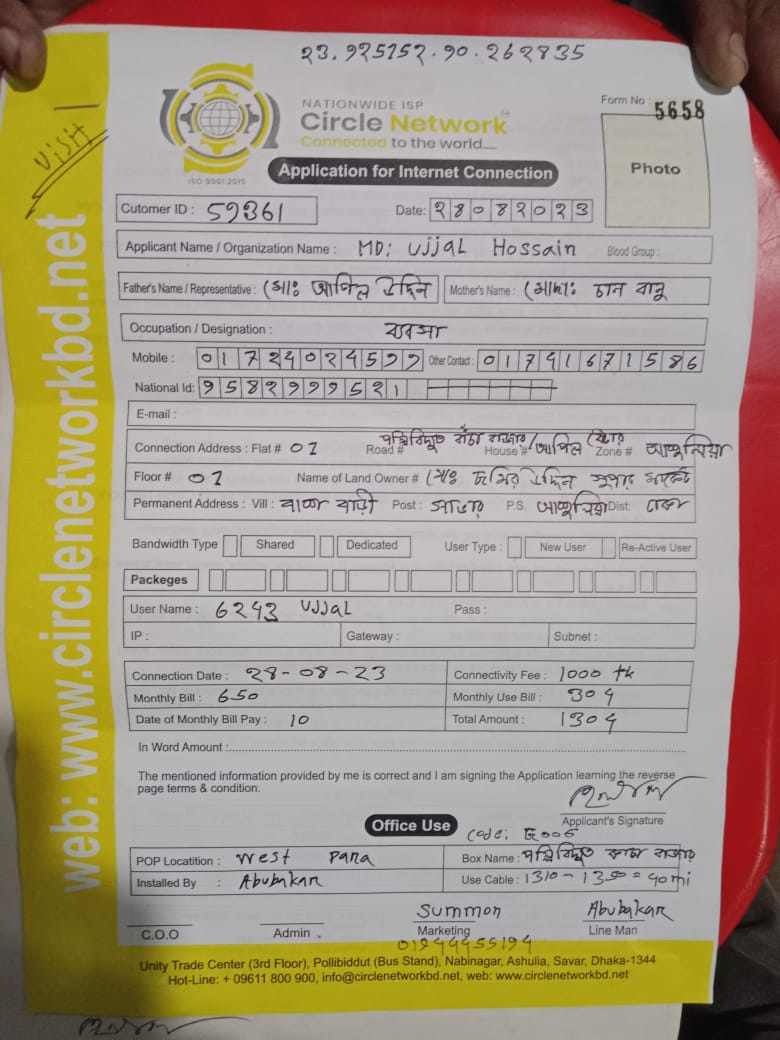 23.925252.90.262835
NATIONWIDE ISP
Circle Network
Connected to the world.....
ISO 9001:2015
Form No : 5658
Photo
Visit
Application for Internet Connection
Cutomer ID : 59361 Date: 28082023
Applicant Name / Organization Name : MD: Ujjal Hossain Blood Group :
Father's Name / Representative : মোঃ উদ্দিন Mother's Name : মোছাঃ চান বানু
Occupation / Designation : ব্যবসা
Mobile : Other Contact : 01741671586
National Id:
E-mail :
Connection Address : Flat # 02 Road # পল্লিবিদ্যুত কাঁচা বাজার House # Zone #
Floor # 02 Name of Land Owner # মোঃ জমির উদ্দিন সুপার মার্কেট
Permanent Address : Vill : Post : সাভার P.S. Dist: ঢাকা
Bandwidth Type Shared Dedicated User Type : New User Re-Active User
Packeges
User Name : 6243 Ujjal Pass :
IP : Gateway : Subnet :
Connection Date : 28-08-23 Connectivity Fee : 1000 tk
Monthly Bill : 650 Monthly Use Bill :
Date of Monthly Bill Pay : 10 Total Amount :
In Word Amount :
The mentioned information provided by me is correct and I am signing the Application learning the reverse
page terms & condition.
Applicant's Signature
Office Use
Code:
POP Locatition : West Para Box Name : পল্লিবিদ্যুত কাচা বাজার
Installed By : Abubakar Use Cable :
Summon Abubakar
C.O.O Admin . Marketing Line Man
Unity Trade Center (3rd Floor), Pollibiddut (Bus Stand), Nabinagar, Ashulia, Savar, Dhaka-1344
Hot-Line: + 09611 800 900, info@circlenetworkbd.net, web: www.circlenetworkbd.net
web: www.circlenetworkbd.net